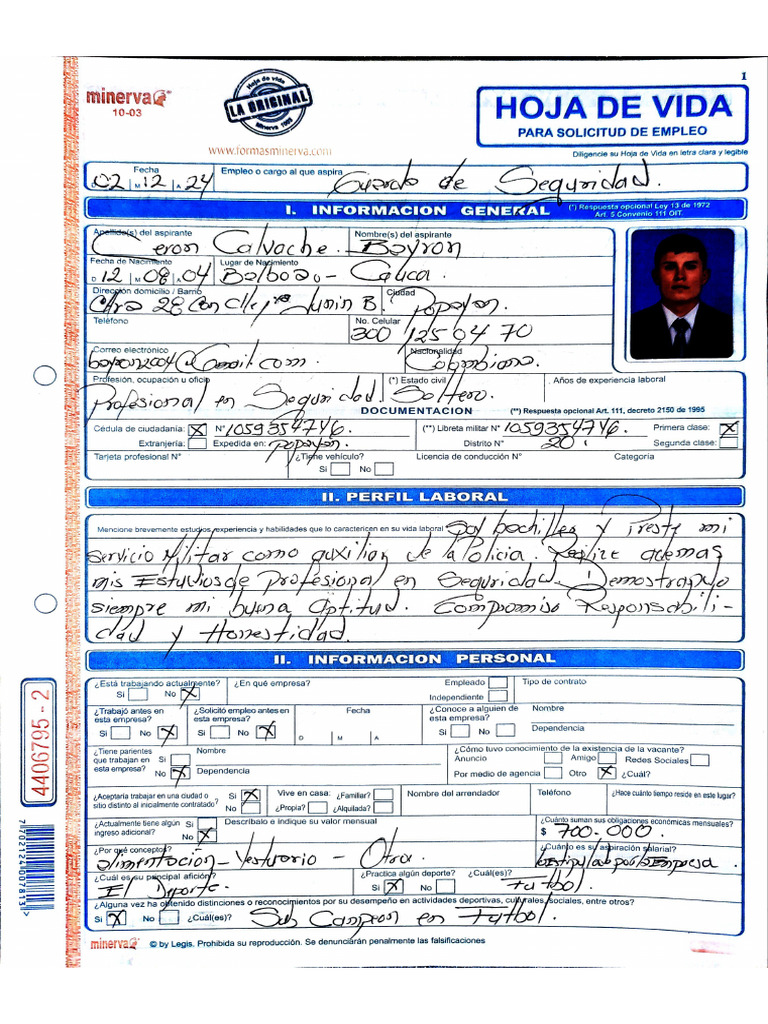 1
minerva
10-03
Hoja de vida
LA ORIGINAL
Minerva 1003
www.formasminerva.com
HOJA DE VIDA
PARA SOLICITUD DE EMPLEO
Diligencie su Hoja de Vida en letra clara y legible
Fecha Empleo o cargo al que aspira
D 02 M 12 A 24 Guarda de Seguridad.
I. INFORMACION GENERAL (*) Respuesta opcional Ley 13 de 1972
Art. 5 Convenio 111 OIT.
Apellido(s) del aspirante Nombre(s) del aspirante
Ceron Calvache. Bayron
Fecha de Nacimiento Lugar de Nacimiento
D 12 M 08 A 04 Balboa - Cauca.
Dirección domicilio / Barrio Ciudad
Ctra 28 Con Junin B. Popayan.
Teléfono No. Celular
300 125 04 70
Correo electrónico Nacionalidad
@Gmail.com. Colombiana
Profesión, ocupación u oficio (*) Estado civil Años de experiencia laboral
Profesional en Seguridad. Soltero.
DOCUMENTACION (**) Respuesta opcional Art. 111, decreto 2150 de 1995
Cédula de ciudadanía: X N° 1059354746. (**) Libreta militar N° 1059354746. Primera clase: X
Extranjería: Expedida en: Popayan. Distrito N° 20. Segunda clase:
Tarjeta profesional N° ¿Tiene vehículo? Licencia de conducción N° Categoría
Si No
II. PERFIL LABORAL
Mencione brevemente estudios, experiencia y habilidades que lo caractericen en su vida laboral Soy bachiller y Preste mi
servicio Militar como auxiliar de la Policia. Realize ademas
mis Estudios de Profesional en Seguridad. Demostrando
siempre mi buena Aptitud. Compromiso Responsabili-
dad y Honestidad.
II. INFORMACION PERSONAL
¿Está trabajando actualmente? ¿En qué empresa? Empleado Tipo de contrato
Si No X Independiente
¿Trabajó antes en esta empresa? ¿Solicitó empleo antes en esta empresa? Fecha ¿Conoce a alguien de esta empresa? Nombre
Si No X Si No X D M A Si No Dependencia
¿Tiene parientes que trabajan en esta empresa? Si No X Nombre ¿Cómo tuvo conocimiento de la existencia de la vacante?
Anuncio Amigo Redes Sociales
Dependencia Por medio de agencia Otro X ¿Cuál?
¿Aceptaría trabajar en una ciudad o sitio distinto al inicialmente contratado? Si X No Vive en casa: ¿Familiar? ¿Propia? ¿Alquilada? Nombre del arrendador Teléfono ¿Hace cuánto tiempo reside en este lugar?
¿Actualmente tiene algún ingreso adicional? Si No X Descríbalo e indique su valor mensual ¿Cuánto suman sus obligaciones económicas mensuales?
$ 700.000.
¿Por qué concepto? ¿Cuánto es su aspiración salarial?
alimentacion - Vestuario - Otra. Estipulado por la Empresa
¿Cuál es su principal afición? ¿Practica algún deporte? ¿Cuál(es)?
El Deporte. Si X No Futbol.
¿Alguna vez ha obtenido distinciones o reconocimientos por su desempeño en actividades deportivas, culturales, sociales, entre otros?
Si X No ¿Cuál(es)? Sub Campeon en Futbol.
minerva © by Legis. Prohibida su reproducción. Se denunciarán penalmente las falsificaciones
4406795 - 2
7702124000781